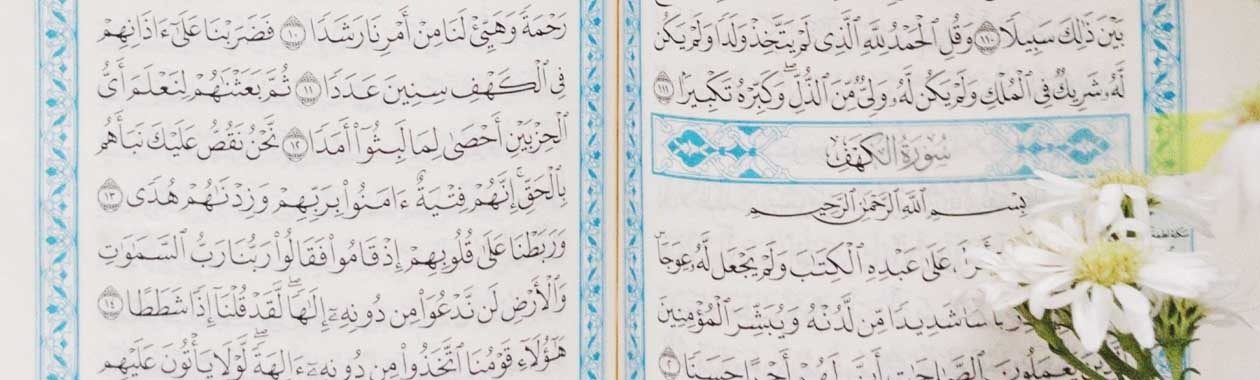 بَيْنَ ذَٰلِكَ سَبِيلًا ١١٠ وَقُلِ ٱلْحَمْدُ لِلَّهِ ٱلَّذِى لَمْ يَتَّخِذْ وَلَدًا وَلَمْ يَكُن
لَّهُۥ شَرِيكٌ فِى ٱلْمُلْكِ وَلَمْ يَكُن لَّهُۥ وَلِىٌّ مِّنَ ٱلذُّلِّ ۖ وَكَبِّرْهُ تَكْبِيرًا ١١١
سُورَةُ الكَهْفِ
بِسْمِ ٱللَّهِ ٱلرَّحْمَٰنِ ٱلرَّحِيمِ
عَلَىٰ عَبْدِهِ ٱلْكِتَٰبَ وَلَمْ يَجْعَل لَّهُۥ عِوَجَا
شَدِيدًا مِّن لَّدُنْهُ وَيُبَشِّرَ ٱلْمُؤْمِنِينَ
يَعْمَلُونَ ٱلصَّٰلِحَٰتِ أَنَّ لَهُمْ أَجْرًا حَسَنًا
رَحْمَةً وَهَيِّئْ لَنَا مِنْ أَمْرِنَا رَشَدًا ١٠ فَضَرَبْنَا عَلَىٰٓ ءَاذَانِهِمْ
فِى ٱلْكَهْفِ سِنِينَ عَدَدًا ١١ ثُمَّ بَعَثْنَٰهُمْ لِنَعْلَمَ أَىُّ
ٱلْحِزْبَيْنِ أَحْصَىٰ لِمَا لَبِثُوٓا۟ أَمَدًا ١٢ نَّحْنُ نَقُصُّ عَلَيْكَ نَبَأَهُم
بِٱلْحَقِّ ۚ إِنَّهُمْ فِتْيَةٌ ءَامَنُوا۟ بِرَبِّهِمْ وَزِدْنَٰهُمْ هُدًى ١٣
وَرَبَطْنَا عَلَىٰ قُلُوبِهِمْ إِذْ قَامُوا۟ فَقَالُوا۟ رَبُّنَا رَبُّ ٱلسَّمَٰوَٰتِ
وَٱلْأَرْضِ لَن نَّدْعُوَا۟ مِن دُونِهِۦٓ إِلَٰهًا ۖ لَّقَدْ قُلْنَآ إِذًا شَطَطًا ١٤
هَٰٓؤُلَآءِ قَوْمُنَا ٱتَّخَذُوا۟ مِن دُونِهِۦٓ ءَالِهَةً ۖ لَّوْلَا يَأْتُونَ عَلَيْهِم